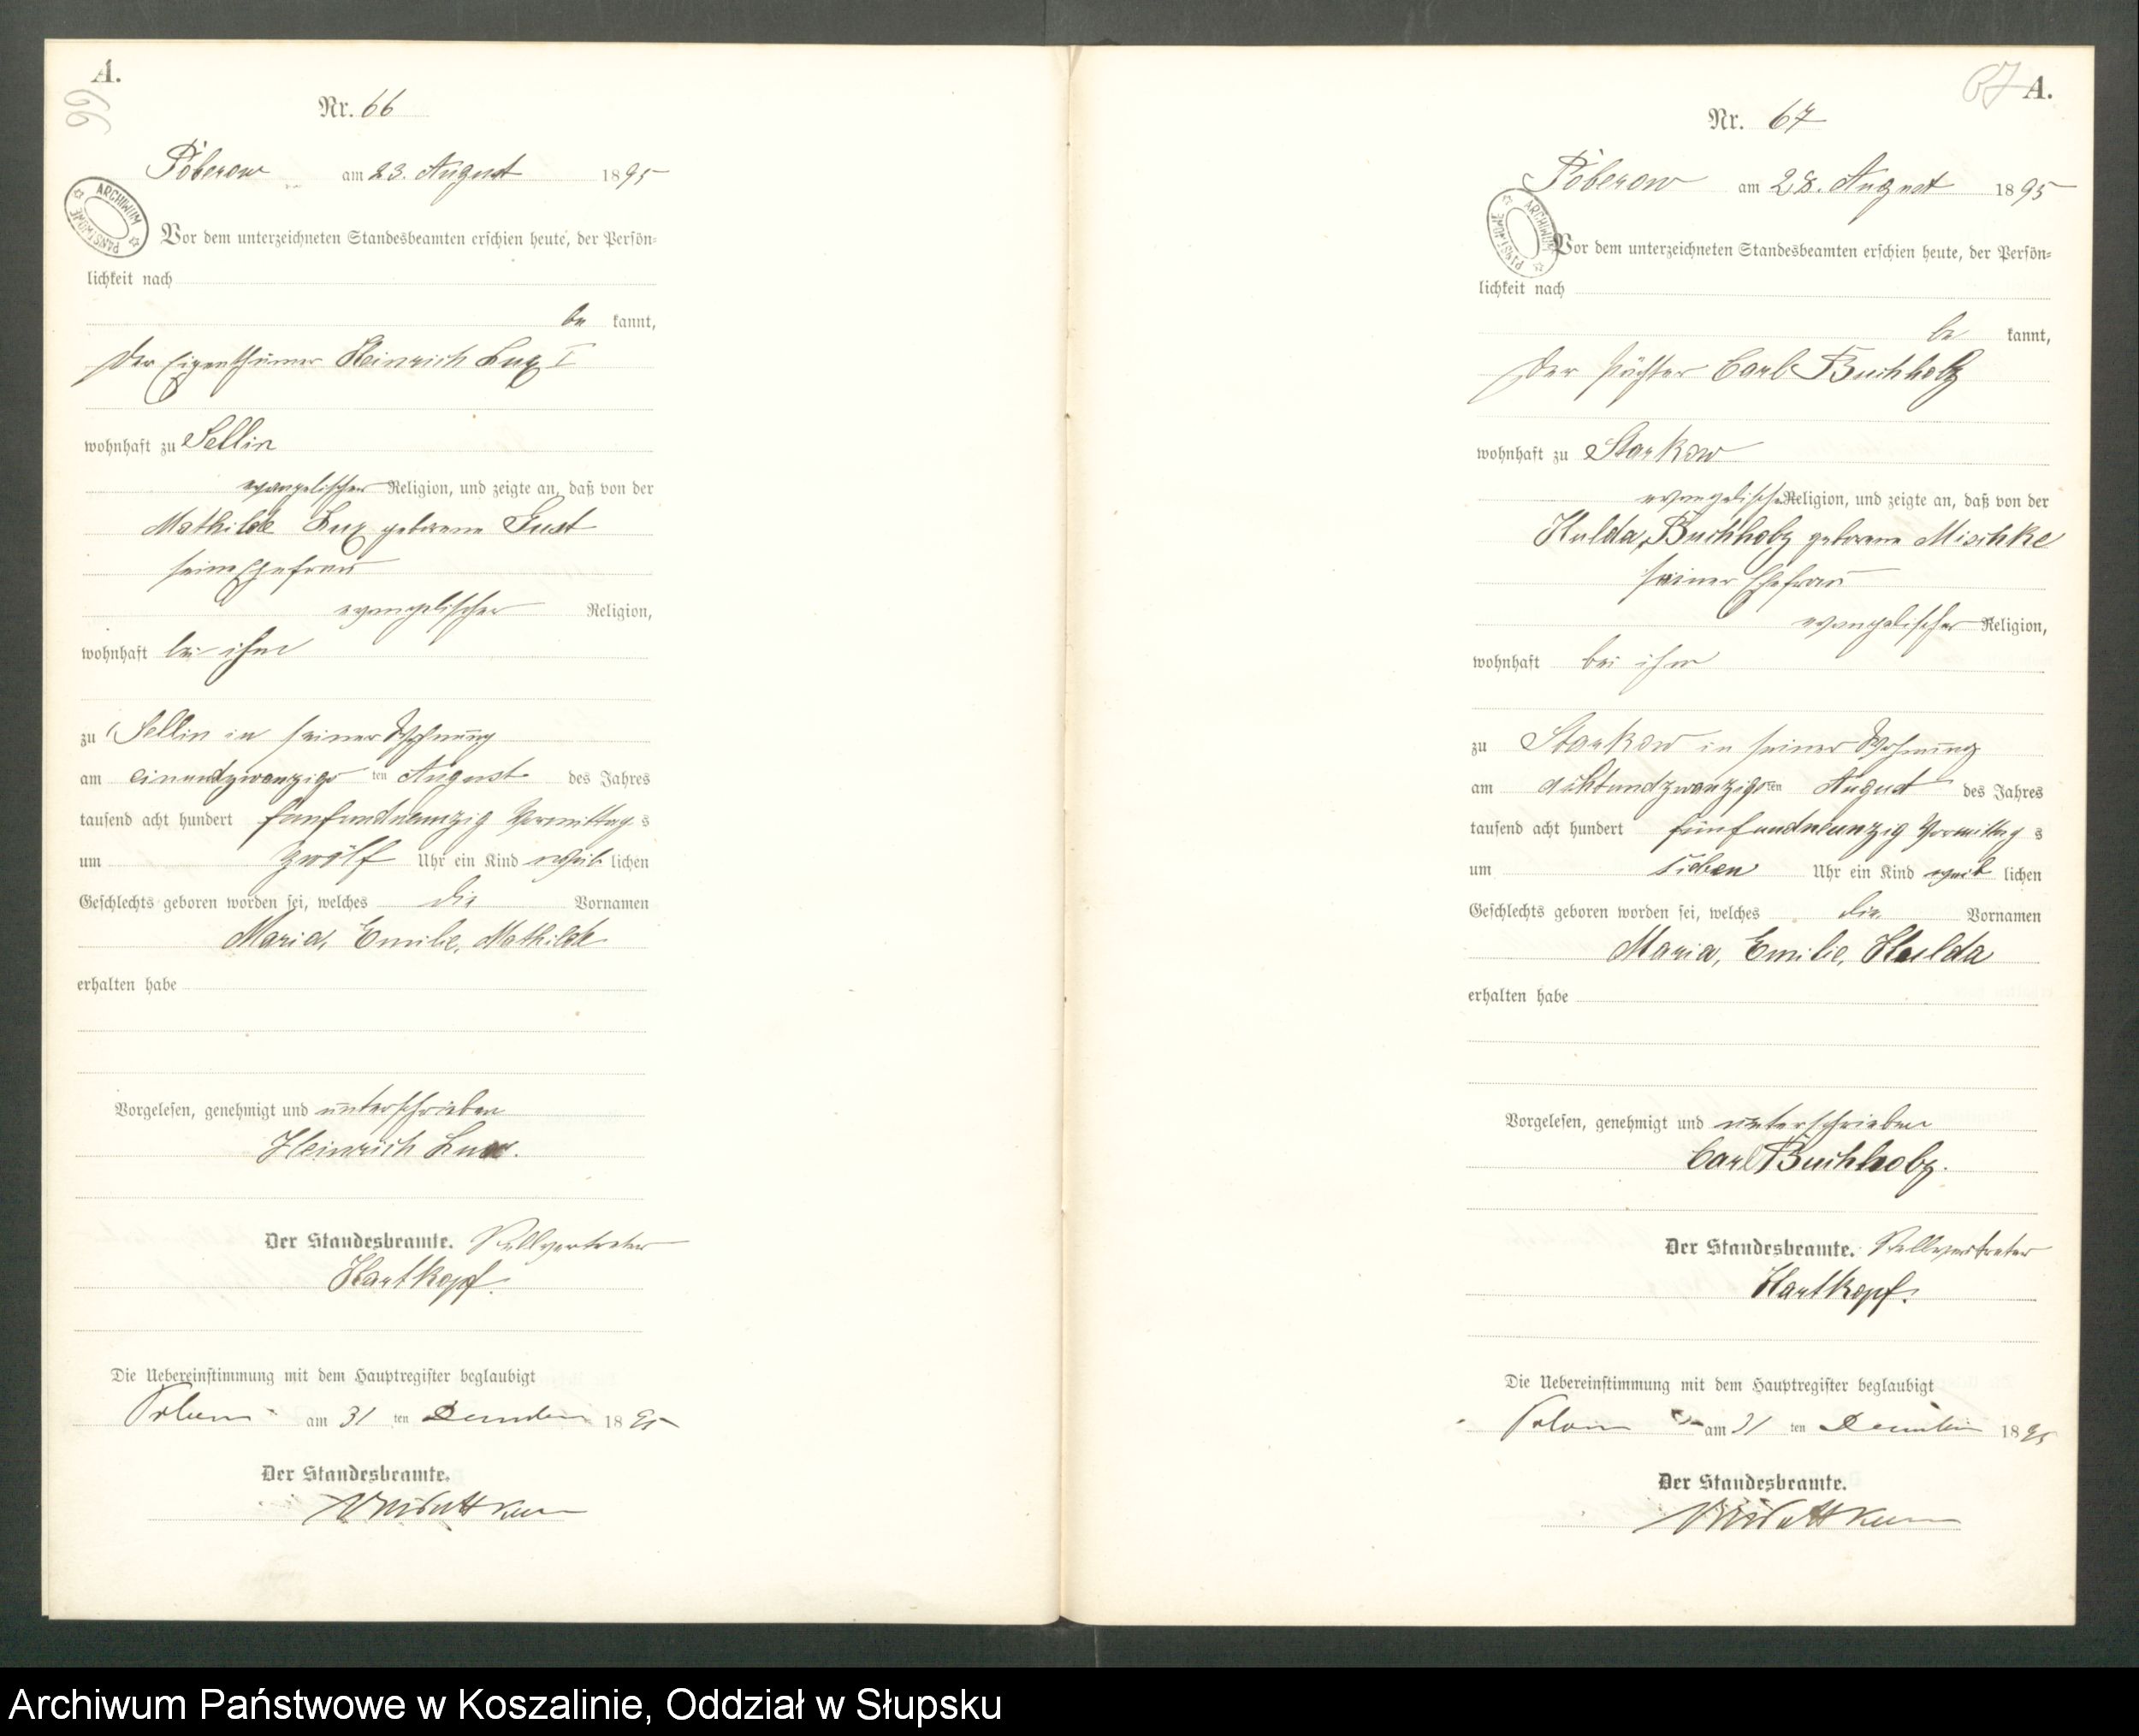 A.
66
Nr. 66
Pöberow am 23. August 1895
ARCHIWUM PAŃSTWOWE
Vor dem unterzeichneten Standesbeamten erschien heute, der Persön-
lichkeit nach
be kannt,
Der Eigenthümer Heinrich Lux I
wohnhaft zu Sellin
evangelischer Religion, und zeigte an, daß von der
Mathilde Lux geborene Gust
seine Ehefrau
evangelischer Religion,
wohnhaft bei ihm
zu Sellin in seiner Wohnung
am einundzwanzigs ten August des Jahres
tausend acht hundert fünfundneunzig Vormittag s
um zwölf Uhr ein Kind weib lichen
Geschlechts geboren worden sei, welches die Vornamen
Maria, Emilie, Mathilde
erhalten habe
Vorgelesen, genehmigt und unterschrieben
Heinrich Lux.
Der Standesbeamte. Stellvertreter
Hartkopf.
Die Uebereinstimmung mit dem Hauptregister beglaubigt
am 31 ten Dezember 1895
Der Standesbeamte.
67 A.
Nr. 67
Pöberow am 28. August 1895
ARCHIWUM PAŃSTWOWE
Vor dem unterzeichneten Standesbeamten erschien heute, der Persön-
lichkeit nach
be kannt,
Der Pächter Carl Buchholz
wohnhaft zu Starkow
evangelischer Religion, und zeigte an, daß von der
Hulda Buchholz geborene Mischke
seiner Ehefrau
evangelischer Religion,
wohnhaft bei ihm
zu Starkow in seiner Wohnung
am achtundzwanzigs ten August des Jahres
tausend acht hundert fünfundneunzig Vormittag s
um sieben Uhr ein Kind weib lichen
Geschlechts geboren worden sei, welches die Vornamen
Maria, Emilie, Hulda
erhalten habe
Vorgelesen, genehmigt und unterschrieben
Carl Buchholz.
Der Standesbeamte. Stellvertreter
Hartkopf.
Die Uebereinstimmung mit dem Hauptregister beglaubigt
am 31 ten Dezember 1895
Der Standesbeamte.
Archiwum Państwowe w Koszalinie, Oddział w Słupsku